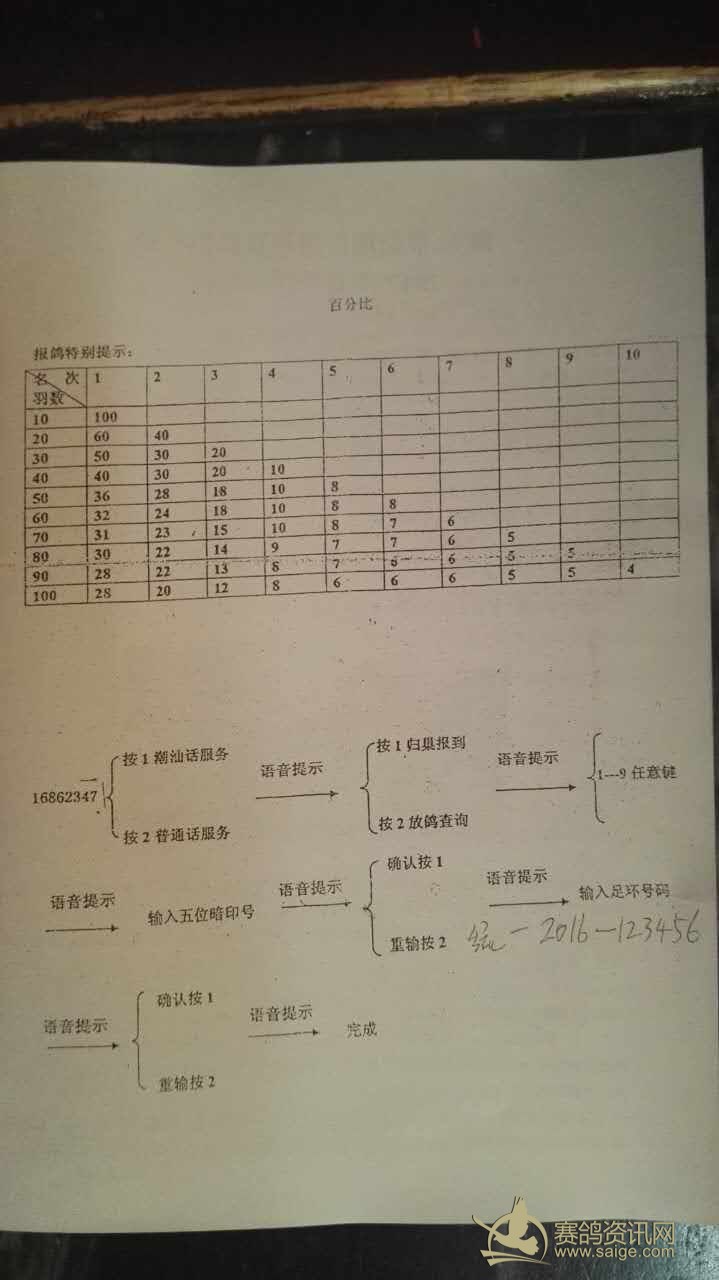 百分比
报鸽特别提示:
名 次 1 2 3 4 5 6 7 8 9 10
羽数
10 100
20 60 40
30 50 30 20
40 40 30 20 10
50 36 28 18 10 8
60 32 24 18 10 8 8
70 31 23 15 10 8 7 6
80 30 22 14 9 7 7 6 5
90 28 22 13 8 7 6 6 5 5
100 28 20 12 8 6 6 6 5 5 4
按 1 潮汕话服务 语音提示 按 1 归巢报到 语音提示
16862347 1---9 任意键
按 2 普通话服务 按 2 放鸽查询
语音提示 输入五位暗印号 语音提示 确认按 1 语音提示 输入足环号码
重输按 2 — 2016 — 123456
语音提示 确认按 1 语音提示 完成
重输按 2
赛鸽资讯网
www.saige.com